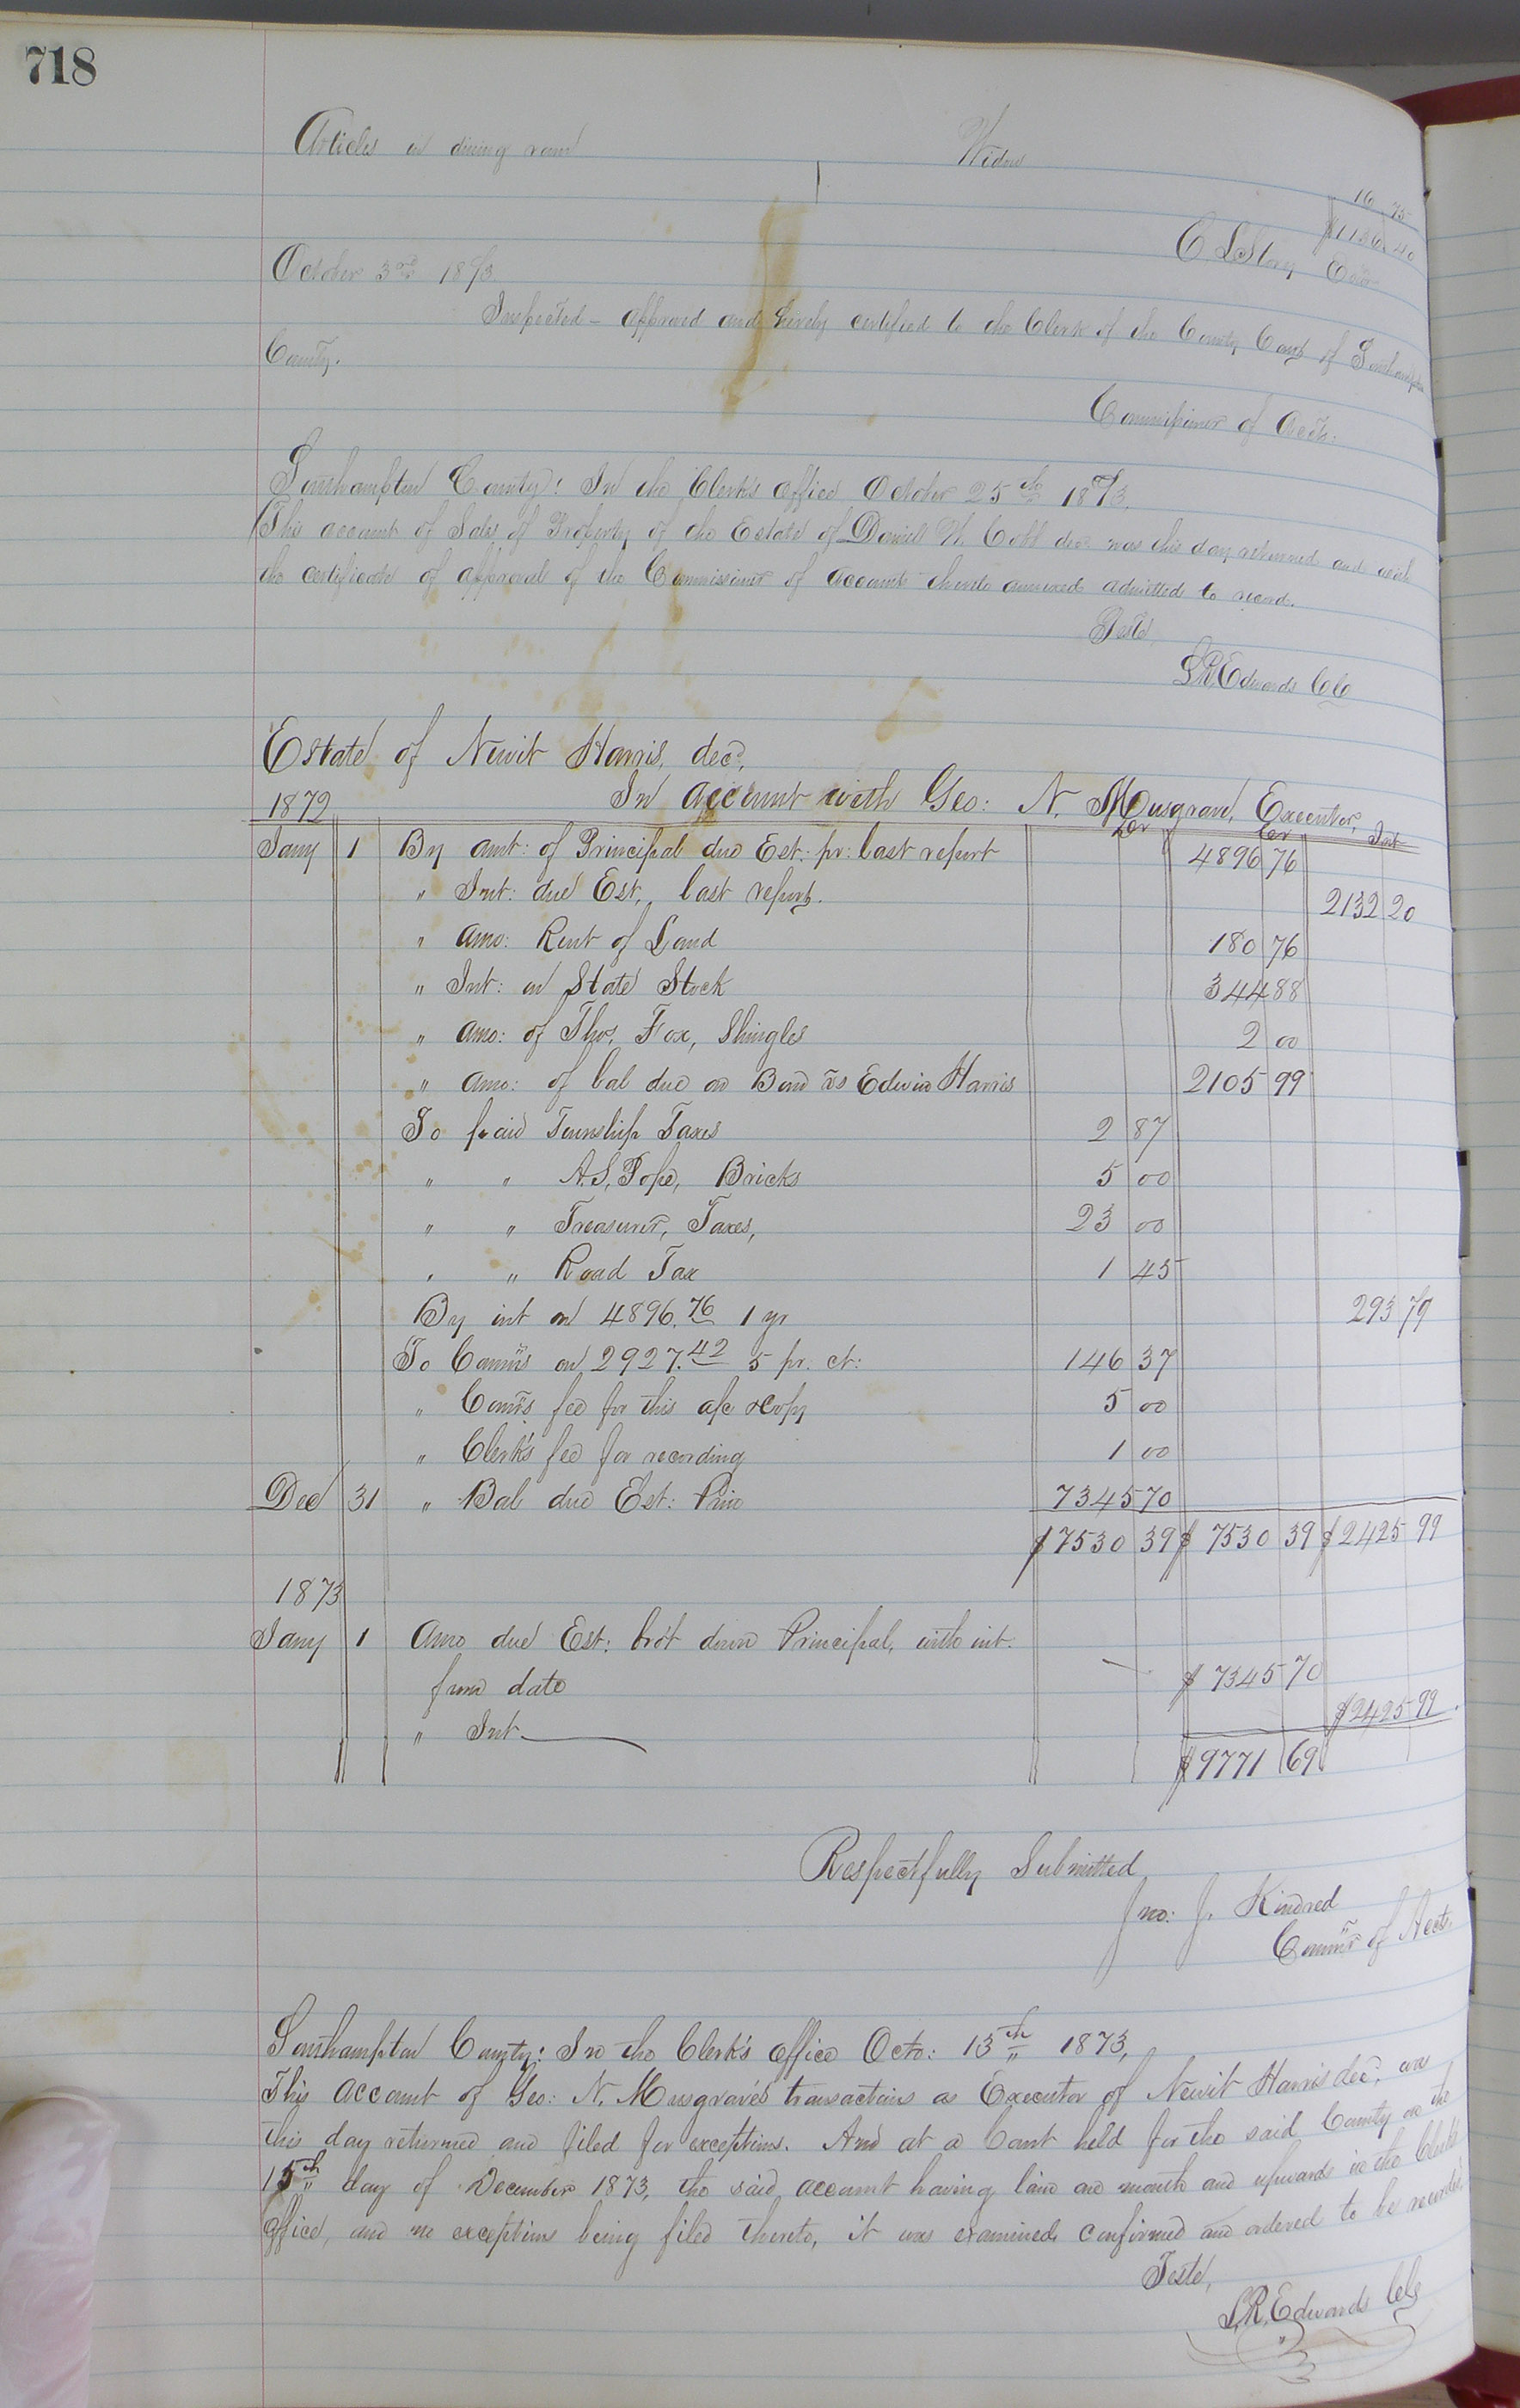 718
Articles in dining room Widow 16 75
$1136 40
C L Story Exor
October 3rd 1873.
Inspected - approved and hereby certified to the Clerk of the County Court of Southampton
County.
Commissioner of Accts.
Southampton County: In the Clerk's office October 25th 1873.
This account of Sales of Property of the Estate of Daniel W. Cobb decd was this day returned and with
the certificate of approval of the Commissioner of accounts thereto annexed admitted to record.
Teste,
L.R. Edwards CC
Estate of Newit Harris, decd,
In account with Geo: N. Musgrave, Executor,
1872 Dr Cr Int
Jany 1 By amt: of Principal due Est: pr: last report 4896 76
" Int: due Est, last report. 2132 20
" Amo: Rent of Land 180 76
" Int: on State Stock 344 88
" Amo: of Thos. Fox, Shingles 2 00
" Amo: of bal due on Bond vs Edwin Harris 2105 99
To paid Township Taxes 2 87
" " A.S. Pope, Bricks 5 00
" " Treasurer, Taxes, 23 00
" " Road Tax 1 45
By int on 4896.76 1 yr 293 79
To Comms on 2927.42 5 pr. ct: 146 37
" Comrs fee for this a/c & copy 5 00
" Clerk's fee for recording 1 00
Dec 31 " Bal due Est: Prin 7345 70
$7530 39 $7530 39 $2425 99
1873
Jany 1 Amo due Est: brot down Principal, with int.
from date $7345 70
" Int $2425 99
$9771 69
Respectfully Submitted
Jno: J. Kindred
Commr of Accts.
Southampton County: In the Clerk's office Octo: 13th 1873,
This account of Geo: N. Musgrave's transactions as Executor of Newit Harris decd, was
this day returned and filed for exceptions. And at a Court held for the said County on the
15th day of December 1873, the said account having lain one month and upwards in the Clerk's
office, and no exceptions being filed thereto, it was examined, confirmed and ordered to be recorded.
Teste,
L.R. Edwards CC